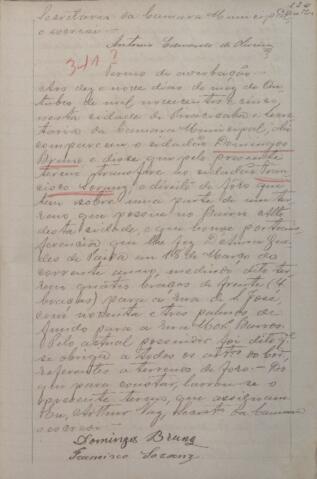 Secretario da Camara Municipal
o escrevi
Antonio de Oliveira
Termo de averbação
Aos dez e nove dias do mez de Ou-
tubro de mil novecentos e cinco,
nesta cidade de Piracicaba e secre-
taria da Camara Municipal, ahi
compareceu o cidadão Domingos
Bruno e disse que pelo presente
termo transfere ao cidadão Fran-
cisco Lorenz o direito de foro que
tem sobre uma parte de um ter-
reno que possue no Bairro Alto
desta cidade e que houve por trans-
ferencia que lhe fez
em 18 de Março do
corrente anno, medindo dito ter-
reno quatro braças de frente (4
braças) para a rua de S. José
com noventa e tres palmos de
fundo para a rua Barros.
Pelo actual possuidor foi dito q.
se obriga a todos os art. do
referentes a terrenos de foro. E
que para constar, lavrou-se o
presente termo, que assignam.
Eu, Arthur Vaz, Secret. da Camara
o escrevi
Domingos Bruno
Francisco